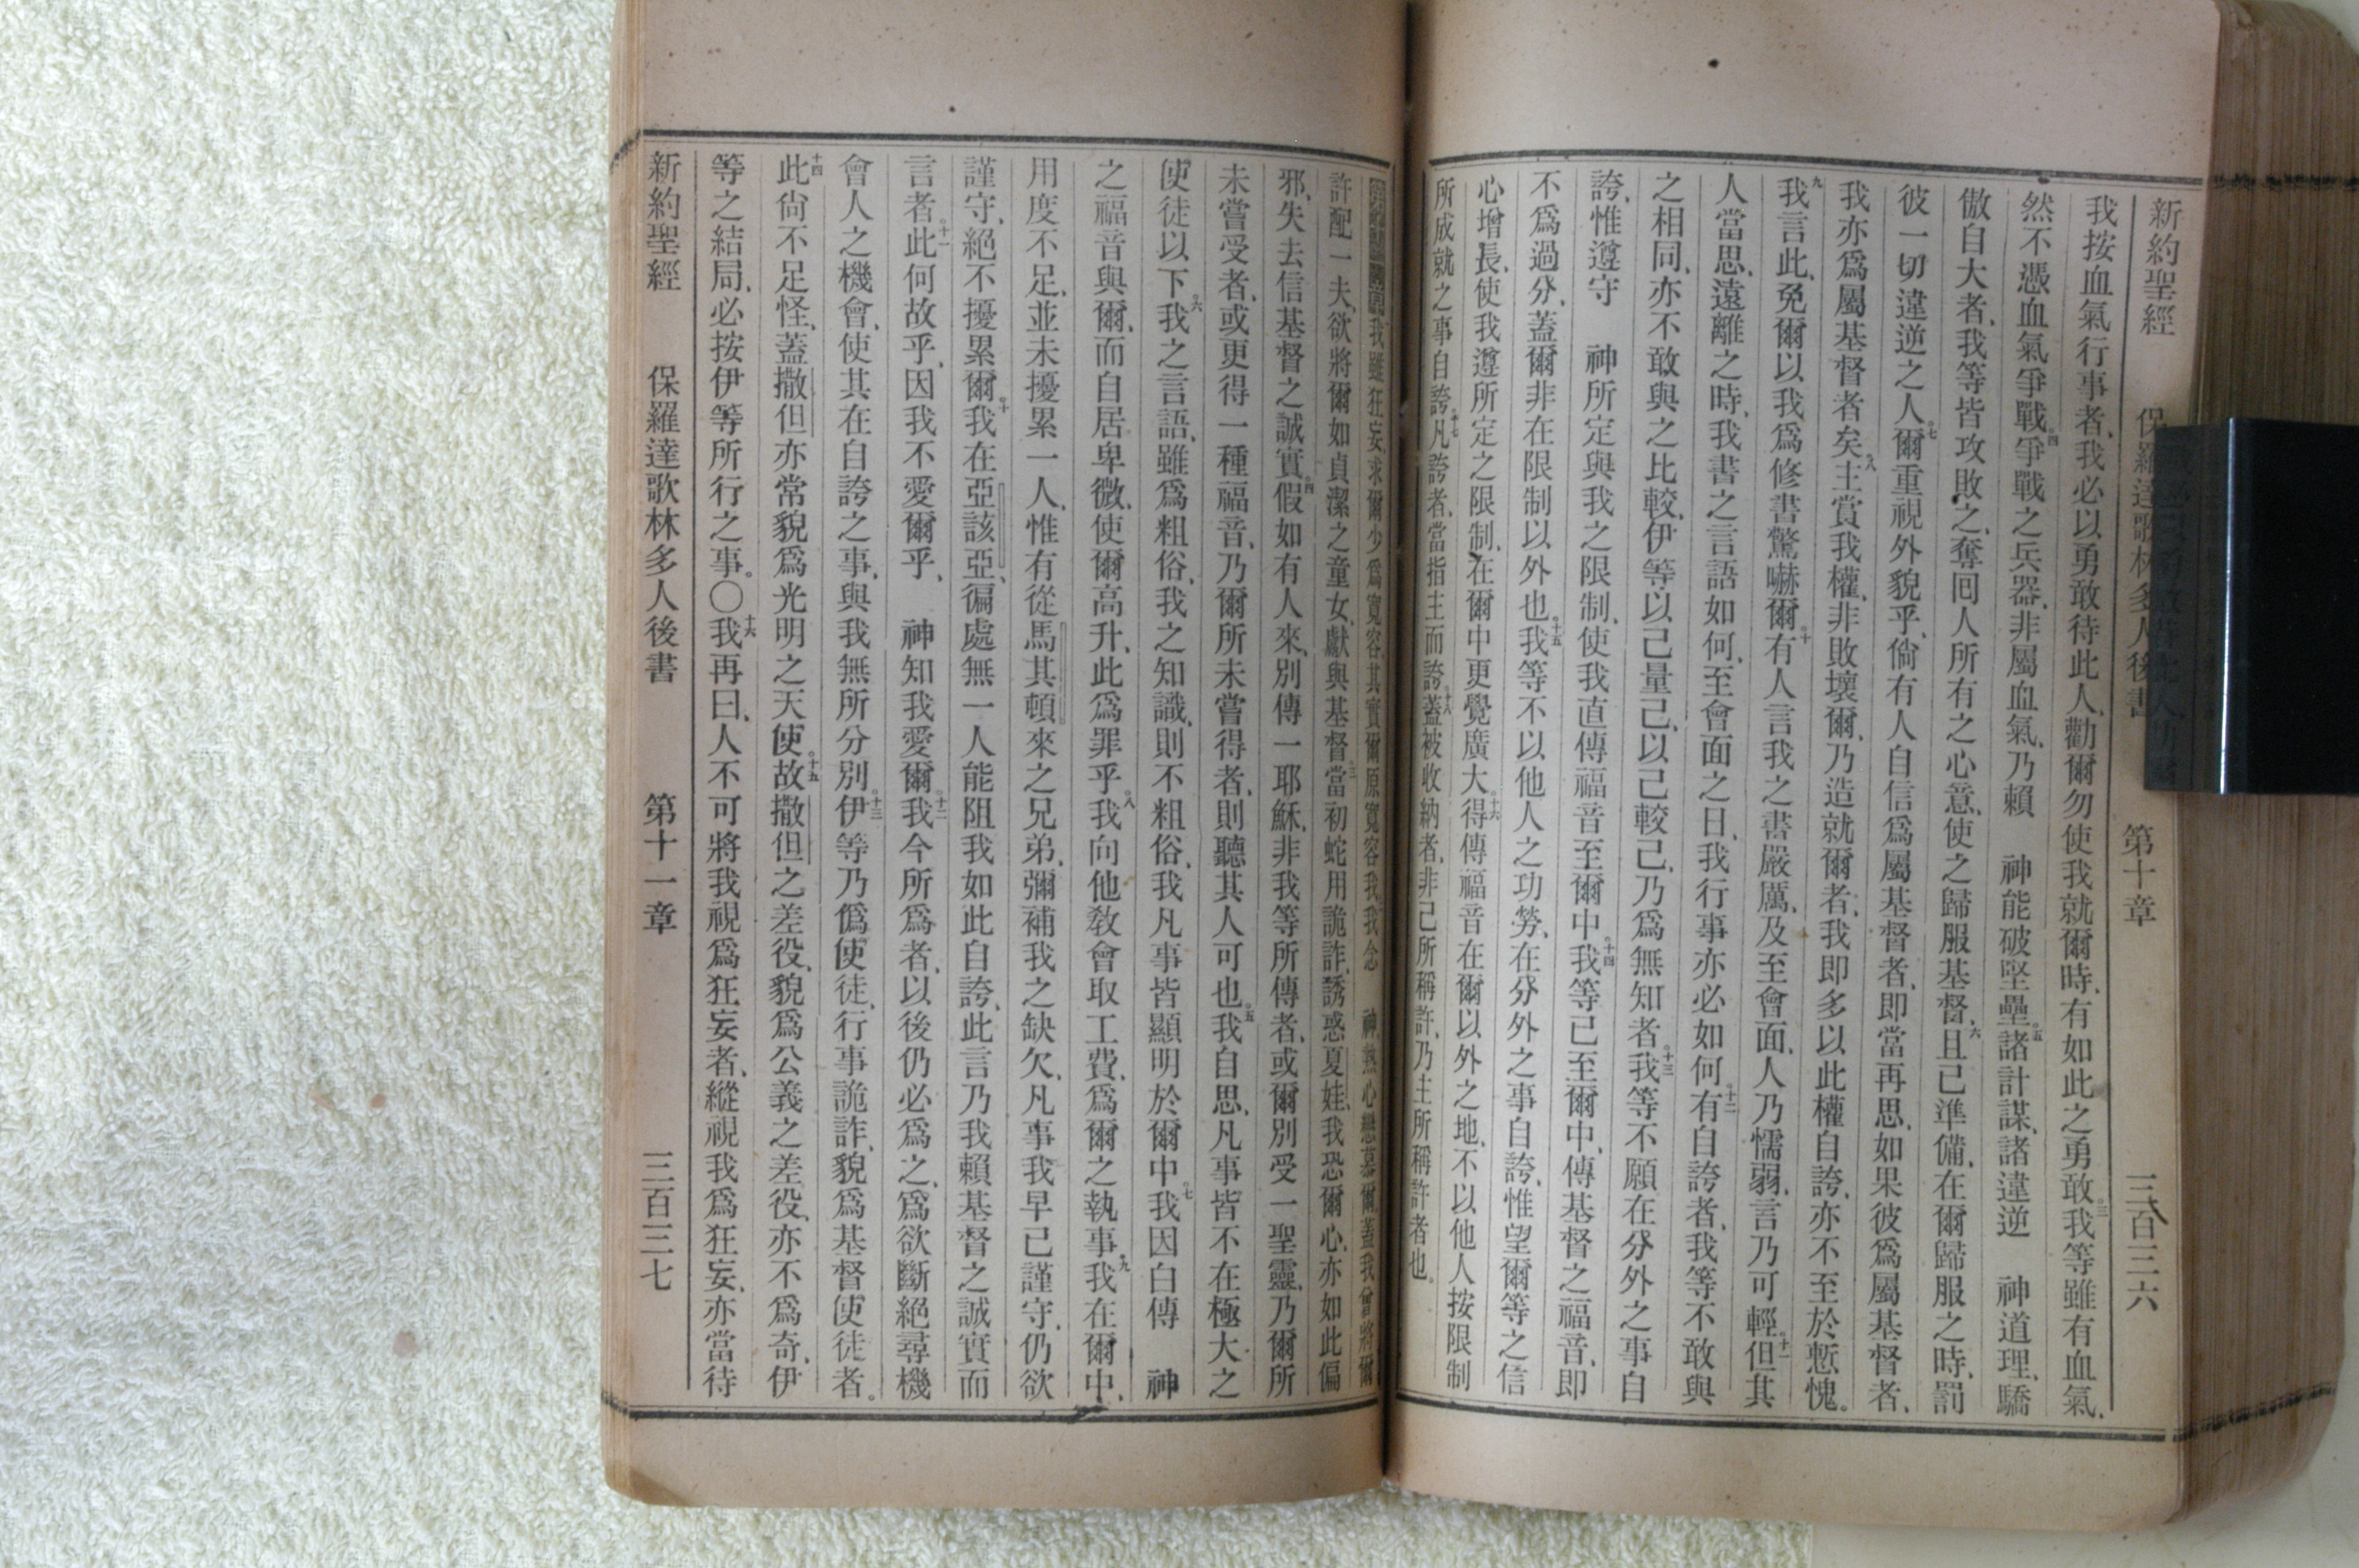 新約聖經 保羅達歌林多人後書 第十章 三百三六
我按血氣行事者、我必以勇敢待此人、勸爾勿使我就爾時、有如此之勇敢。三我等雖有血氣、
然不憑血氣爭戰。四爭戰之兵器、非屬血氣、乃賴 神能破堅壘。五諸計謀、諸違逆 神道理、驕
傲自大者、我等皆攻敗之、奪囘人所有之心意、使之歸服基督。六且已準備、在爾歸服之時、罰
彼一切違逆之人。七爾重視外貌乎、倘有人自信爲屬基督者、卽當再思、如果彼爲屬基督者、
我亦爲屬基督者矣。八主賞我權、非敗壞爾、乃造就爾者、我卽多以此權自誇、亦不至於慙愧。
九我言此、免爾以我爲修書驚嚇爾。十有人言我之書嚴厲、及至會面、人乃懦弱、言乃可輕。十一但其
人當思、遠離之時、我書之言語如何、至會面之日、我行事亦必如何。十二有自誇者、我等不敢與
之相同、亦不敢與之比較、伊等以己量己、以己較己、乃爲無知者。十三我等不願在分外之事自
誇、惟遵守 神所定與我之限制、使我直傳福音至爾中。十四我等已至爾中、傳基督之福音、卽
不爲過分、蓋爾非在限制以外也。十五我等不以他人之功勞、在分外之事自誇、惟望爾等之信
心增長、使我遵所定之限制、在爾中更覺廣大。十六得傳福音在爾以外之地、不以他人按限制
所成就之事自誇。十七凡誇者、當指主而誇。十八蓋被收納者、非己所稱許、乃主所稱許者也。
我雖狂妄、求爾少爲寬容、其實爾原寬容我、我念 神熱心戀慕爾、蓋我曾將爾
許配一夫、欲將爾如貞潔之童女、獻與基督。三當初蛇用詭詐、誘惑夏娃、我恐爾心、亦如此偏
邪、失去信基督之誠實。四假如有人來、別傳一耶穌、非我等所傳者、或爾別受一聖靈、乃爾所
未嘗受者、或更得一種福音、乃爾所未嘗得者、則聽其人可也。五我自思、凡事皆不在極大之
使徒以下。六我之言語、雖爲粗俗、我之知識、則不粗俗、我凡事皆顯明於爾中。七我因白傳 神
之福音與爾、而自居卑微、使爾高升、此爲罪乎。八我向他敎會取工費、爲爾之執事。九我在爾中、
用度不足、並未擾累一人、惟有從馬其頓來之兄弟、彌補我之缺欠、凡事我早已謹守、仍欲
謹守、絕不擾累爾。十我在亞該亞、徧處無一人能阻我如此自誇、此言乃我賴基督之誠實而
言者。十一此何故乎、因我不愛爾乎、 神知我愛爾。十二我今所爲者、以後仍必爲之、爲欲斷絕尋機
會人之機會、使其在自誇之事、與我無所分別。十三伊等乃僞使徒、行事詭詐、貌爲基督使徒者。
十四此尙不足怪、蓋撒但亦常貌爲光明之天使。十五故撒但之差役、貌爲公義之差役、亦不爲奇、伊
等之結局、必按伊等所行之事。〇十六我再曰、人不可將我視爲狂妄者、縱視我爲狂妄、亦當待
新約聖經 保羅達歌林多人後書 第十一章 三百三七